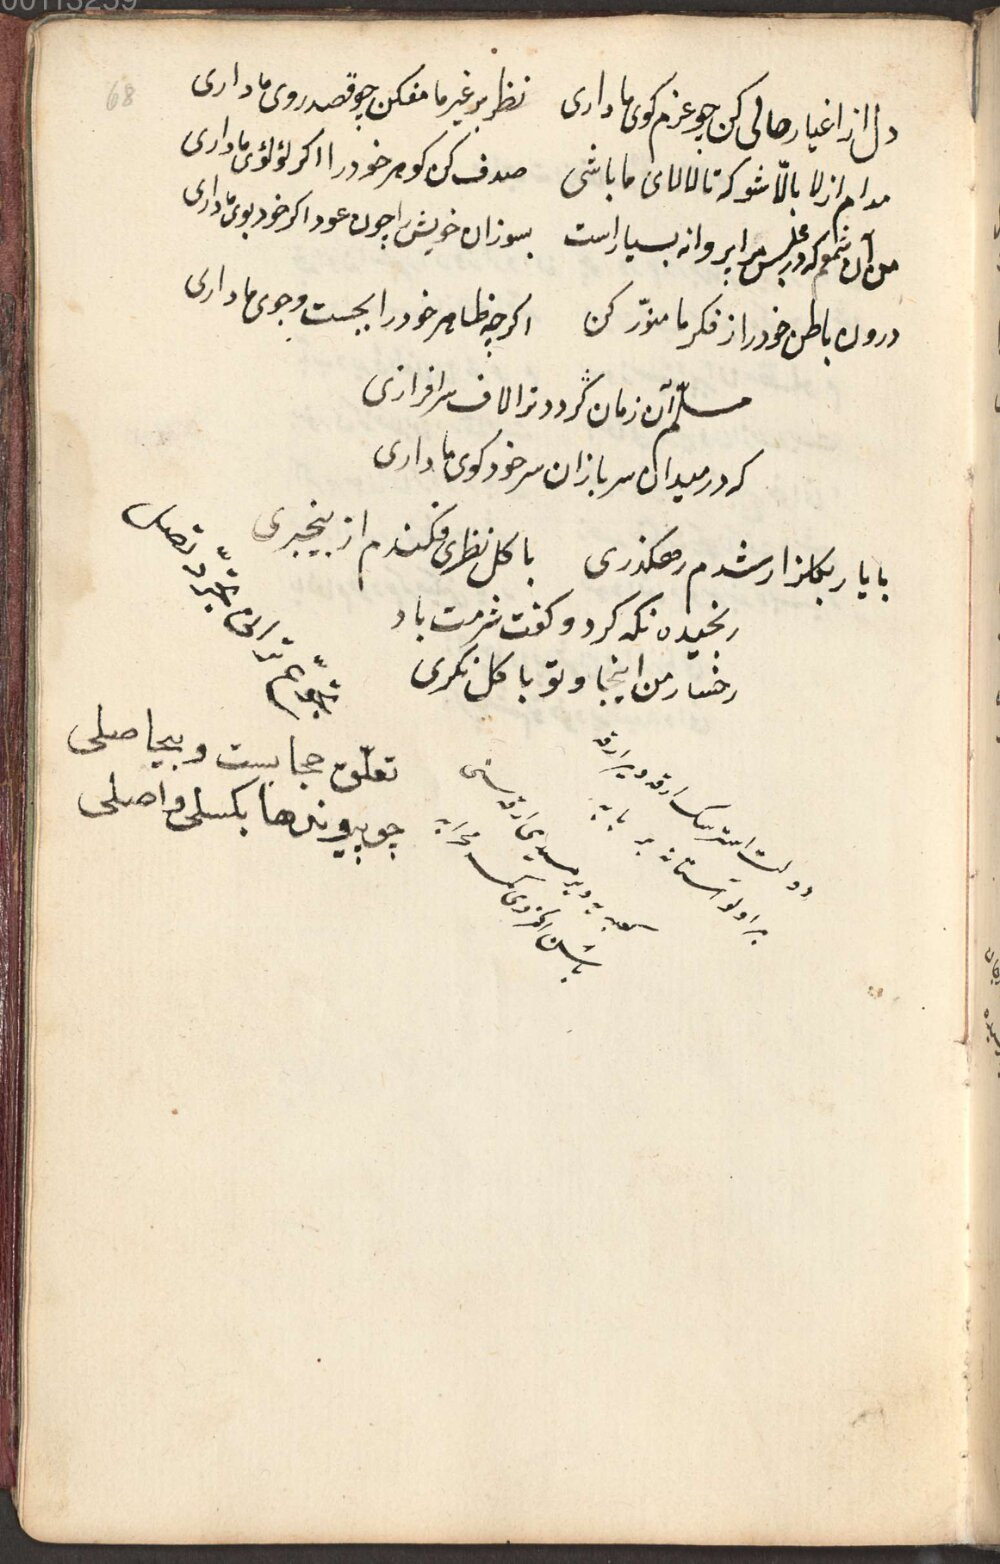 00113259
68
دل از اغیار خالی کن چو عزم کوی ما داری نظر بر غیر ما مفکن چو قصد روی ما داری
مدام از لا بالّا شو که تا لالای ما باشی صدف کن کوهر خود را اکر لؤلؤی ما داری
من آن شمعم که در مجلس مرا پروانه بسیار است بسوزان خویش را چون عود اکر خود بوی ما داری
درون باطن خود را ز فکر ما منوّر کن اکرچه ظاهر خود را بجست و جوی ما داری
مسلّم آن زمان کردد ترا لاف سرافرازی
که در میدان سربازان سر خود کوی ما داری
با یار بکلزار شدم رهکذری با کل نظری فکندم از بیخبری
رنجیده نکه کرد و کفت شرمت باد
رخسار من اینجا و تو با کل نکری
تجوّع ترانی تجرّد تصل
تعلّق حجابست و بیحاصلی
چو پیوندها بکسلی واصلی
دولت استرسک